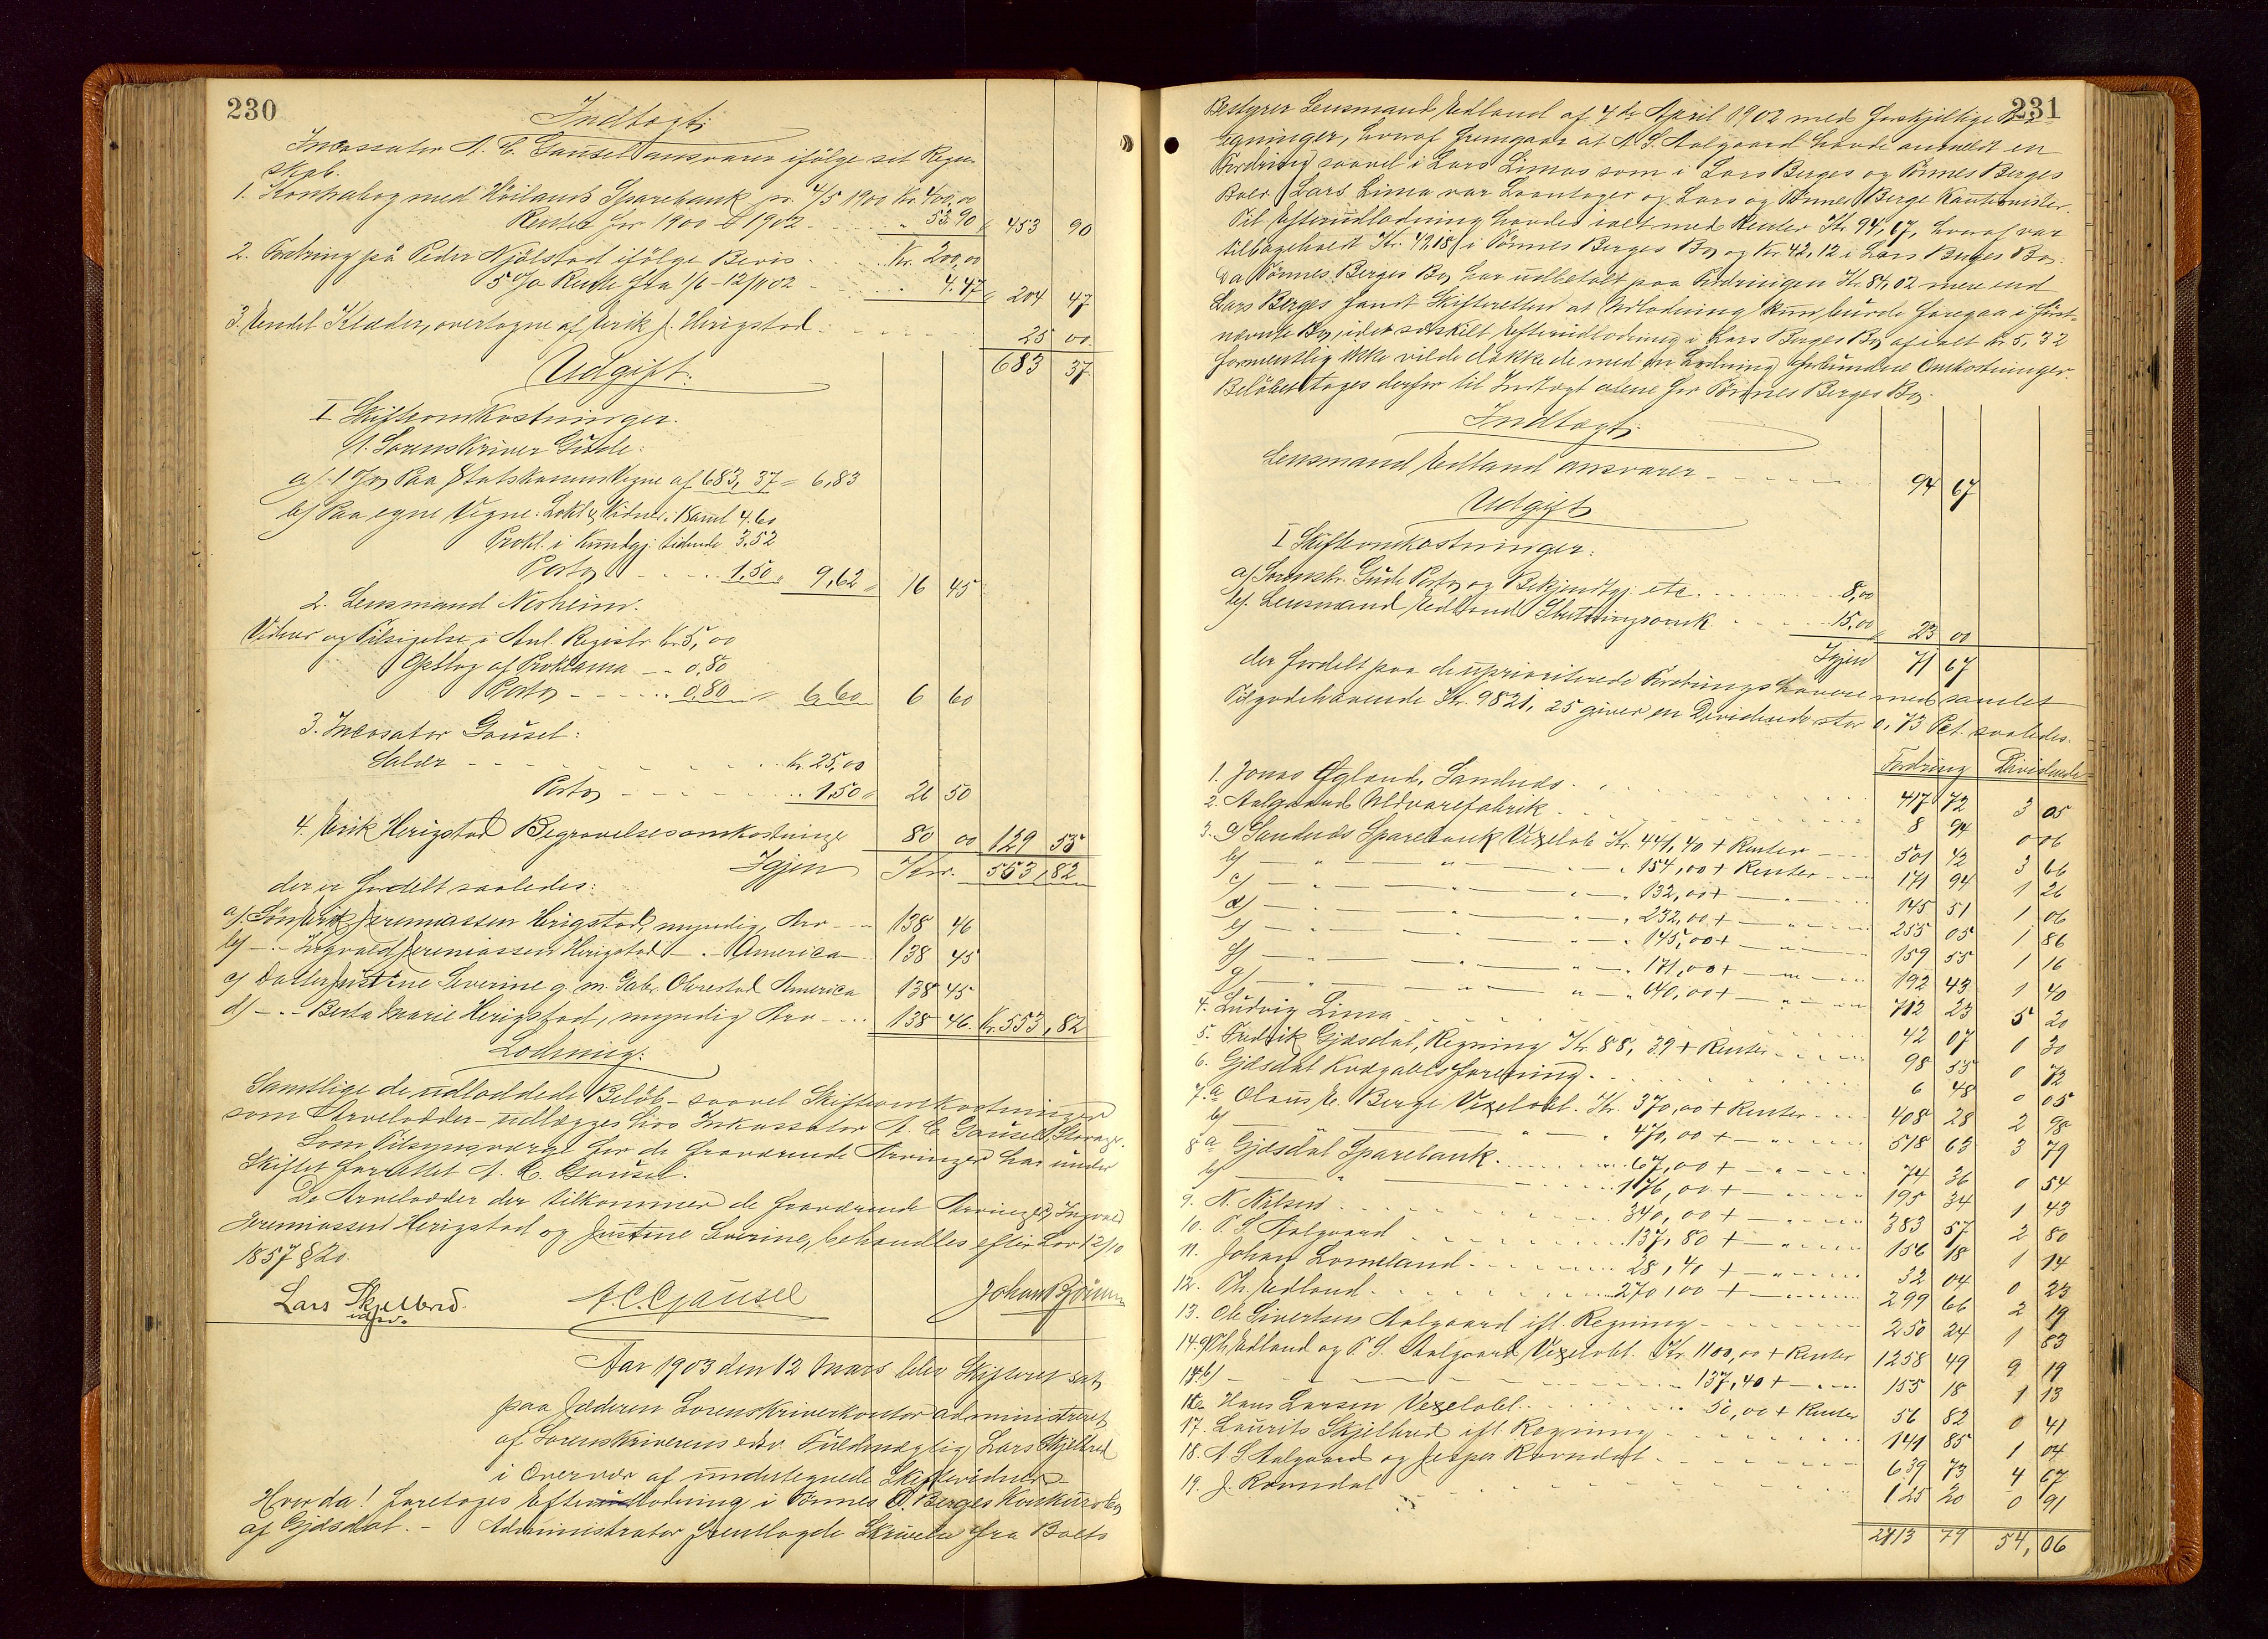 230
Indtægt:
Incassator A. C. Gausel ansvarer ifølge sit Regn-
skab.
1. Kontrabog med Høilands Sparebank pr. 4/5 1900 Kr. 400,00
Renter for 1900 & 1902 - - - „ 53,90 „ 453 90
2. Fordring på Peder Njølstad ifølge Bevis - Kr. 200,00
5 % Rente fra 1/6 - 12/11 02 - - - 4.47 „ 204 47
3. Endel Klæder, overtagne af Erik J. Herigstad - - - 25 00
683 37
Udgift:
I Skifteomkostninger.
1. Sorenskriver Gude:
a/. 1 % Paa Statskassens Vegne af 683,37 = 6,83
b) Paa egne Vegne. Lokl & Vidner i Saml 4.60
Prokl. i Kundgj. tidende 3.52
Porto - - - 1,50 „ 9,62 „ 16 45
2. Lensmand Norheim.
Vidner og Tilsigelse i Anl. Registr. Kr. 5,00
Opslag af Proklama - - 0,80
Porto - - - 0,80 „ 6,60 6 60
3. Incassator Gausel:
Salær - - - Kr. 25,00
Porto - - - 1,50 „ 26 50
4. Erik Herigstad Begravelsesomkostninger 80 00 129 55
Igjen Kr. 553,82
der er fordelt saaledes:
a/. Søn Erik Jeremiassen Herigstad, myndig, Aro - - 138 46
b) - „ - Ingvald Jeremiassen Herigstad - „ - America - 138 45
c) Datter Justine Severine g. m. Gabr. Obrestad America 138 45
d) - „ - Berta Marie Herigstad, myndig Aro - - 138 46. Kr. 553,82
Lodning:
Samtlige de udloddede Beløb - saavel Skifteomkostninger
som Arvelodder - udlægges hos Inkassator A. C. Gausel, Stavanger.
Som Tilsynsværge for de fraværende Arvinger har under
Skiftet forrettet A. C. Gausel.
De Arvelodder der tilkommer de fraværende Arvinger, Ingvald
Jeremiassen Herigstad og Justine Severine, behandles efter Lov 12/10
1857 § 20.
Lars Skjelbred A. C. Gausel Johan Bjørnsen
edsv.
Aar 1903 den 12 Mars blev Skifteret sat
paa Jæderens Sorenskriverkontor administreret
af Sorenskriverens edsv. Fuldmægtig Lars Skjelbred
i Overvær af undertegnede Skiftevidner
Hvorda! foretoges Efterudlodning i Tønnes O. Berges Konkursbo
af Gjæsdal. - Administrator fremlagde Skrivelse fra Boets
231
Bestyrer Lensmand Edland af 7de April 1902 med forskjellige Be-
regninger, hvoraf fremgaar at A. S. Aalgaard havde anmeldt en
Fordring saavel i Lars Limas som i Lars Berges og Tønnes Berges
Boer (Lars Lima var Laantager og Lars og Tønnes Berge Kautionister.
Til Efterudlodning havdes ialt med Renter Kr. 94,67, hvoraf var
tilbageholdt Kr. 49,18 i Tønnes Berges Bo og Kr. 42,12 i Lars Berges Bo.
Da Tønnes Berges Bo har udbetalt paa Fordringen Kr. 84,02 mere end
Lars Berges fandt Skifteretten at Udlodning kun burde foregaa i først-
nævnte Bo, idet særskilt Efterudlodning i Lars Berges Bo af ialt Kr. 5,32
formentlig ikke vilde dække de med en Lodning forbundne Omkostninger.
Beløbet toges derfor til Indtægt alene for Tønnes Berges Bo.
Indtægt:
Lensmand Edland ansvarer - - - 94 67
Udgift
I Skifteomkostninger:
a/. Sorenskr. Gude Porto og Bekjendtgj. etc. - - - 8,00
b/. Lensmand Edland Slutningsomk. - - - 15,00 „ 23 00
Igjen 71 67
der fordelt paa de uprioriterede Fordringshavere med samlet
Tilgodehavende Kr. 9821,25 giver en Dividende stor 0,73 Pct. saaledes.
Fordring Dividende
1. Jonas Øgland, Sandnes - - - 417 72 3 05
2. Aalgaards Uldvarefabrik - - - 8 94 0 06
3. a) Sandnes Sparebank Vexelob. Kr. 441,40 + Renter - - 501 42 3 66
b) - „ - „ - „ 154,00 + Renter - - 171 94 1 26
c) - „ - „ - „ 132,00 + - - 145 51 1 06
d) - „ - „ - „ 232,00 + - „ - 255 05 1 86
e) - „ - „ - „ 145,00 + - „ - 159 55 1 16
f) - „ - „ - „ 171,00 + - „ - 192 43 1 40
g) - „ - „ - „ 640,00 + - „ - 712 23 5 20
4. Ludvig Lima - - - 42 07 0 30
5. Fredrik Gjæsdal, Regning Kr. 88,39 + Renter - - 98 55 0 72
6. Gjæsdal Kvægavlsforening - - - 6 48 0 05
7. a Olaus E. Berge Vexelobl. Kr. 370,00 + Renter - - 408 28 2 98
b) - „ - „ 470,00 + - „ - 518 63 3 79
8 a Gjæsdal Sparebank - - - 67,00 + - „ - 74 36 0 54
b) - „ - 176,00 + - „ - 195 34 1 43
9. N. Nilsen - - - 340,00 + - „ - 383 57 2 80
10. P. S. Aalgaard - - - 137,80 + - „ - 156 18 1 14
11. Johan Lomeland - - - 28,40 + - „ - 32 04 0 23
12. Th. Edland - - - 270,00 + - „ - 299 66 2 19
13. Ole Sivertsen Aalgaard ifl. Regning - - - 250 24 1 83
14. a) Th. Edland og P. S. Aalgaard Vexelobl. Kr. 1100,00 + Renter 1258 49 9 19
b) - - - 137,40 + - „ - 155 18 1 13
16. Hans Larsen Vexelobl. - - - 50,00 + Renter 56 82 0 41
17. Laurits Skjelbred ifl. Regning - - - 141 85 1 04
18. A. S. Aalgaard og Jesper Ravndal - - - 639 73 4 67
19. J. Ravndal - - - 125 20 0 91
2713 79 54,06